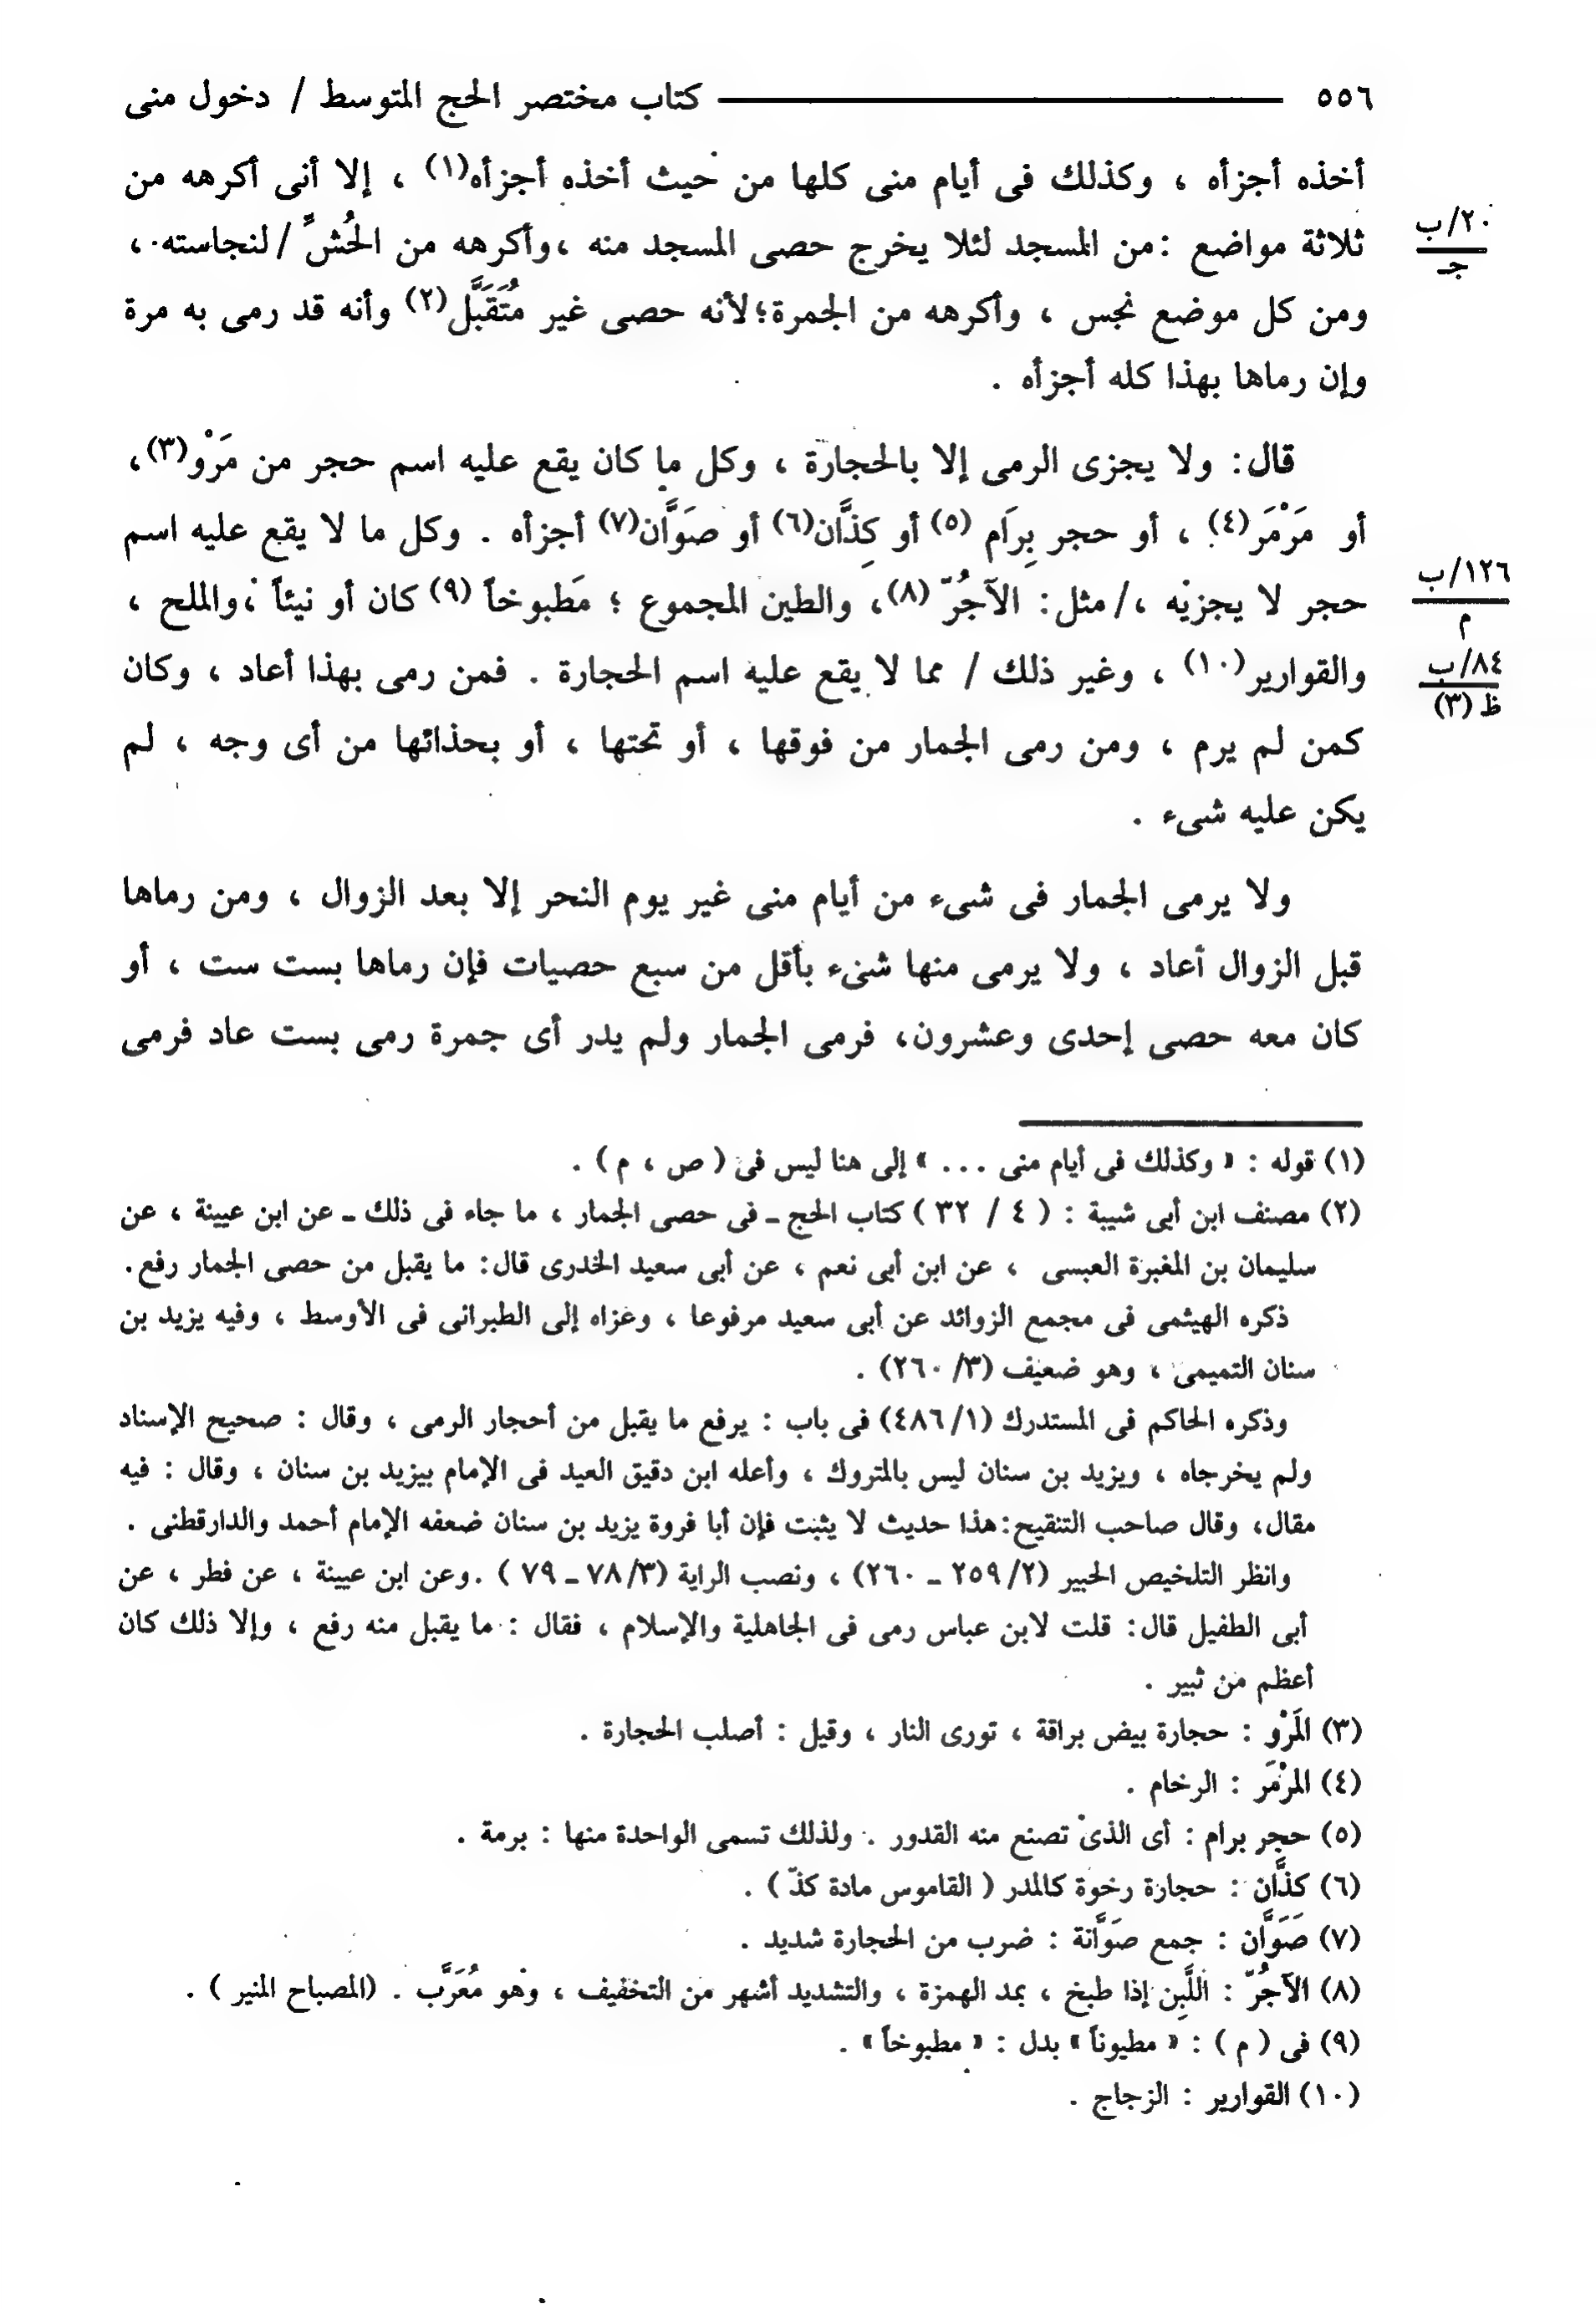 ٥٥٦ كتاب مختصر الحج المتوسط / دخول منى
أخذه أجزأه ، وكذلك فى أيام منى كلها من حيث أخذه أجزأه(١) ، إلا أنى أكرهه من
ثلاثة مواضع : من المسجد لئلا يخرج حصى المسجد منه ، وأكرهه من الحُشِّ / لنجاسته ،
٢٠/ب
جـ
ومن كل موضع نجس ، وأكرهه من الجمرة؛ لأنه حصى غير مُتَقَبَّل(٢) وأنه قد رمى به مرة
وإن رماها بهذا كله أجزأه .
قال: ولا يجزى الرمى إلا بالحجارة ، وكل ما كان يقع عليه اسم حجر من مَرْو(٣)،
أو مَرْمَر(٤) ، أو حجر بِرَام (٥) أو كِذَّان(٦) أو صَوَّان(٧) أجزأه . وكل ما لا يقع عليه اسم
حجر لا يجزيه ،/ مثل: الآجُرّ (٨)، والطين المجموع ؛ مَطبوخاً (٩) كان أو نيئاً ، والملح ،
١٢٦/ب
م
والقوارير(١٠) ، وغير ذلك / مما لا يقع عليه اسم الحجارة . فمن رمى بهذا أعاد ، وكان
٨٤/ب
ظ (٣)
كمن لم يرم ، ومن رمى الجمار من فوقها ، أو تحتها ، أو بحذائها من أى وجه ، لم
يكن عليه شىء .
ولا يرمى الجمار فى شىء من أيام منى غير يوم النحر إلا بعد الزوال ، ومن رماها
قبل الزوال أعاد ، ولا يرمى منها شىء بأقل من سبع حصيات فإن رماها بست ست ، أو
كان معه حصى إحدى وعشرون، فرمى الجمار ولم يدر أى جمرة رمى بست عاد فرمى
(١) قوله : « وكذلك فى أيام منى ... » إلى هنا ليس فى ( ص ، م ) .
(٢) مصنف ابن أبى شيبة : ( ٤ / ٣٢ ) كتاب الحج ـ فى حصى الجمار ، ما جاء فى ذلك ـ عن ابن عيينة ، عن
سليمان بن المغبرة العبسى ، عن ابن أبى نعم ، عن أبى سعيد الخدرى قال: ما يقبل من حصى الجمار رفع.
ذكره الهيثمى فى مجمع الزوائد عن أبى سعيد مرفوعا ، وعزاه إلى الطبرانى فى الأوسط ، وفيه يزيد بن
سنان التميمى ، وهو ضعيف (٣/ ٢٦٠) .
وذكره الحاكم فى المستدرك (١/ ٤٨٦) فى باب : يرفع ما يقبل من أحجار الرمى ، وقال : صحيح الإسناد
ولم يخرجاه ، ويزيد بن سنان ليس بالمتروك ، وأعله ابن دقيق العيد فى الإمام بيزيد بن سنان ، وقال : فيه
مقال، وقال صاحب التنقيح: هذا حديث لا يثبت فإن أبا فروة يزيد بن سنان ضعفه الإمام أحمد والدارقطنى .
وانظر التلخيص الحبير (٢/ ٢٥٩ ـ ٢٦٠) ، ونصب الراية (٣/ ٧٨ ـ ٧٩ ) . وعن ابن عيينة ، عن فطر ، عن
أبى الطفيل قال: قلت لابن عباس رمى فى الجاهلية والإسلام ، فقال : ما يقبل منه رفع ، وإلا ذلك كان
أعظم من ثبير .
(٣) المَرْو : حجارة بيض براقة ، تورى النار ، وقيل : أصلب الحجارة .
(٤) المرْمَر : الرخام .
(٥) حجر برام : أى الذى تصنع منه القدور . ولذلك تسمى الواحدة منها : برمة .
(٦) كذَّان : حجارة رخوة كالمدر ( القاموس مادة كذّ ) .
(٧) صَوَّان : جمع صَوَّانة : ضرب من الحجارة شديد .
(٨) الآجُرّ : اللَّبِن إذا طبخ ، بمد الهمزة ، والتشديد أشهر من التخفيف ، وهو مُعَرَّب . (المصباح المنير ) .
(٩) فى ( م ) : « مطيوناً » بدل : « مطبوخاً » .
(١٠) القوارير : الزجاج .